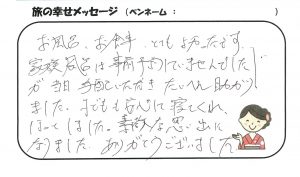 旅の幸せメッセージ (ペンネーム: )
お風呂、お食事、とてもよかったです。
家族風呂は事前予約していませんでした
が当日手配していただき たいへん助かり
ました。子どもも安心して寝てくれ、
ほっとしました。素敵な思い出に
なりました。ありがとうございました